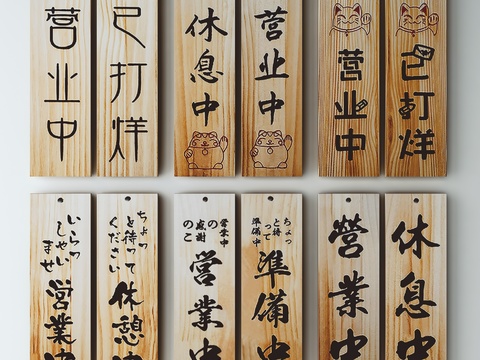 营业中
已打烊
休息中
营业中
营业中
已打烊
いらっ
しゃい
ませ
営業中
ちょっ
と待って
ください
休憩中
営業中
の感謝
のこ
営業中
ちょっ
と待って
準備中
準備中
營業中
休息中